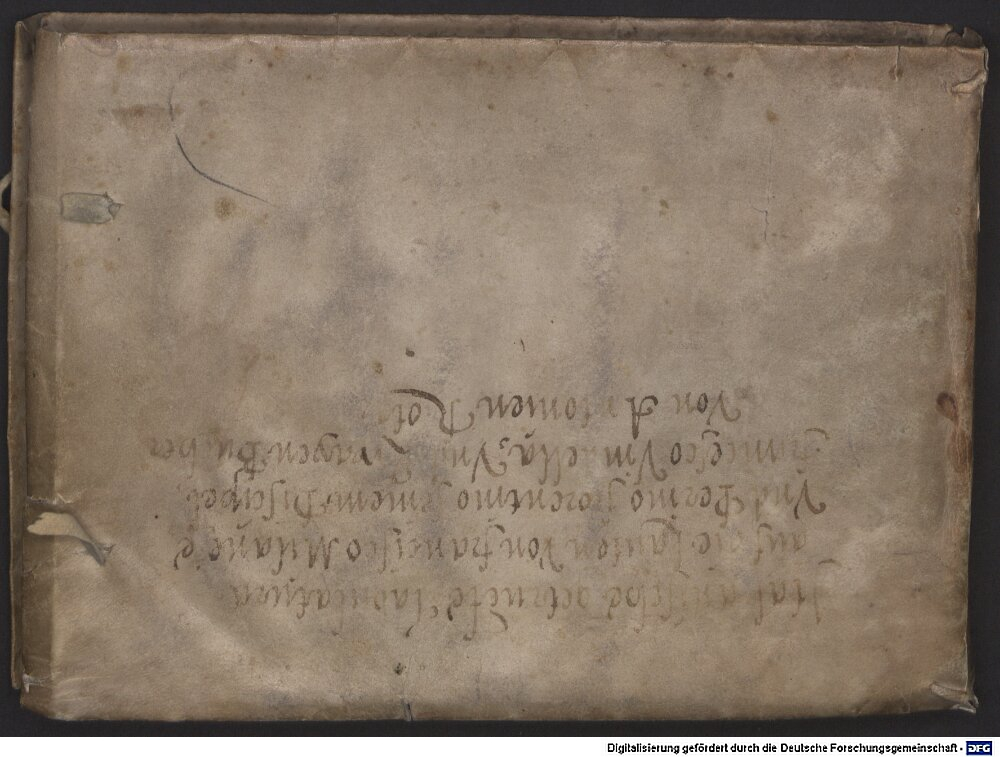 Italianische getruckte Tabulatura
auf die Lauten Von francisco Milanese
Vnd Perino fiorentino seinem Discipel,
francisco Vindella, Vnd
Von Antonien Rot
Digitalisierung gefördert durch die Deutsche Forschungsgemeinschaft - DFG